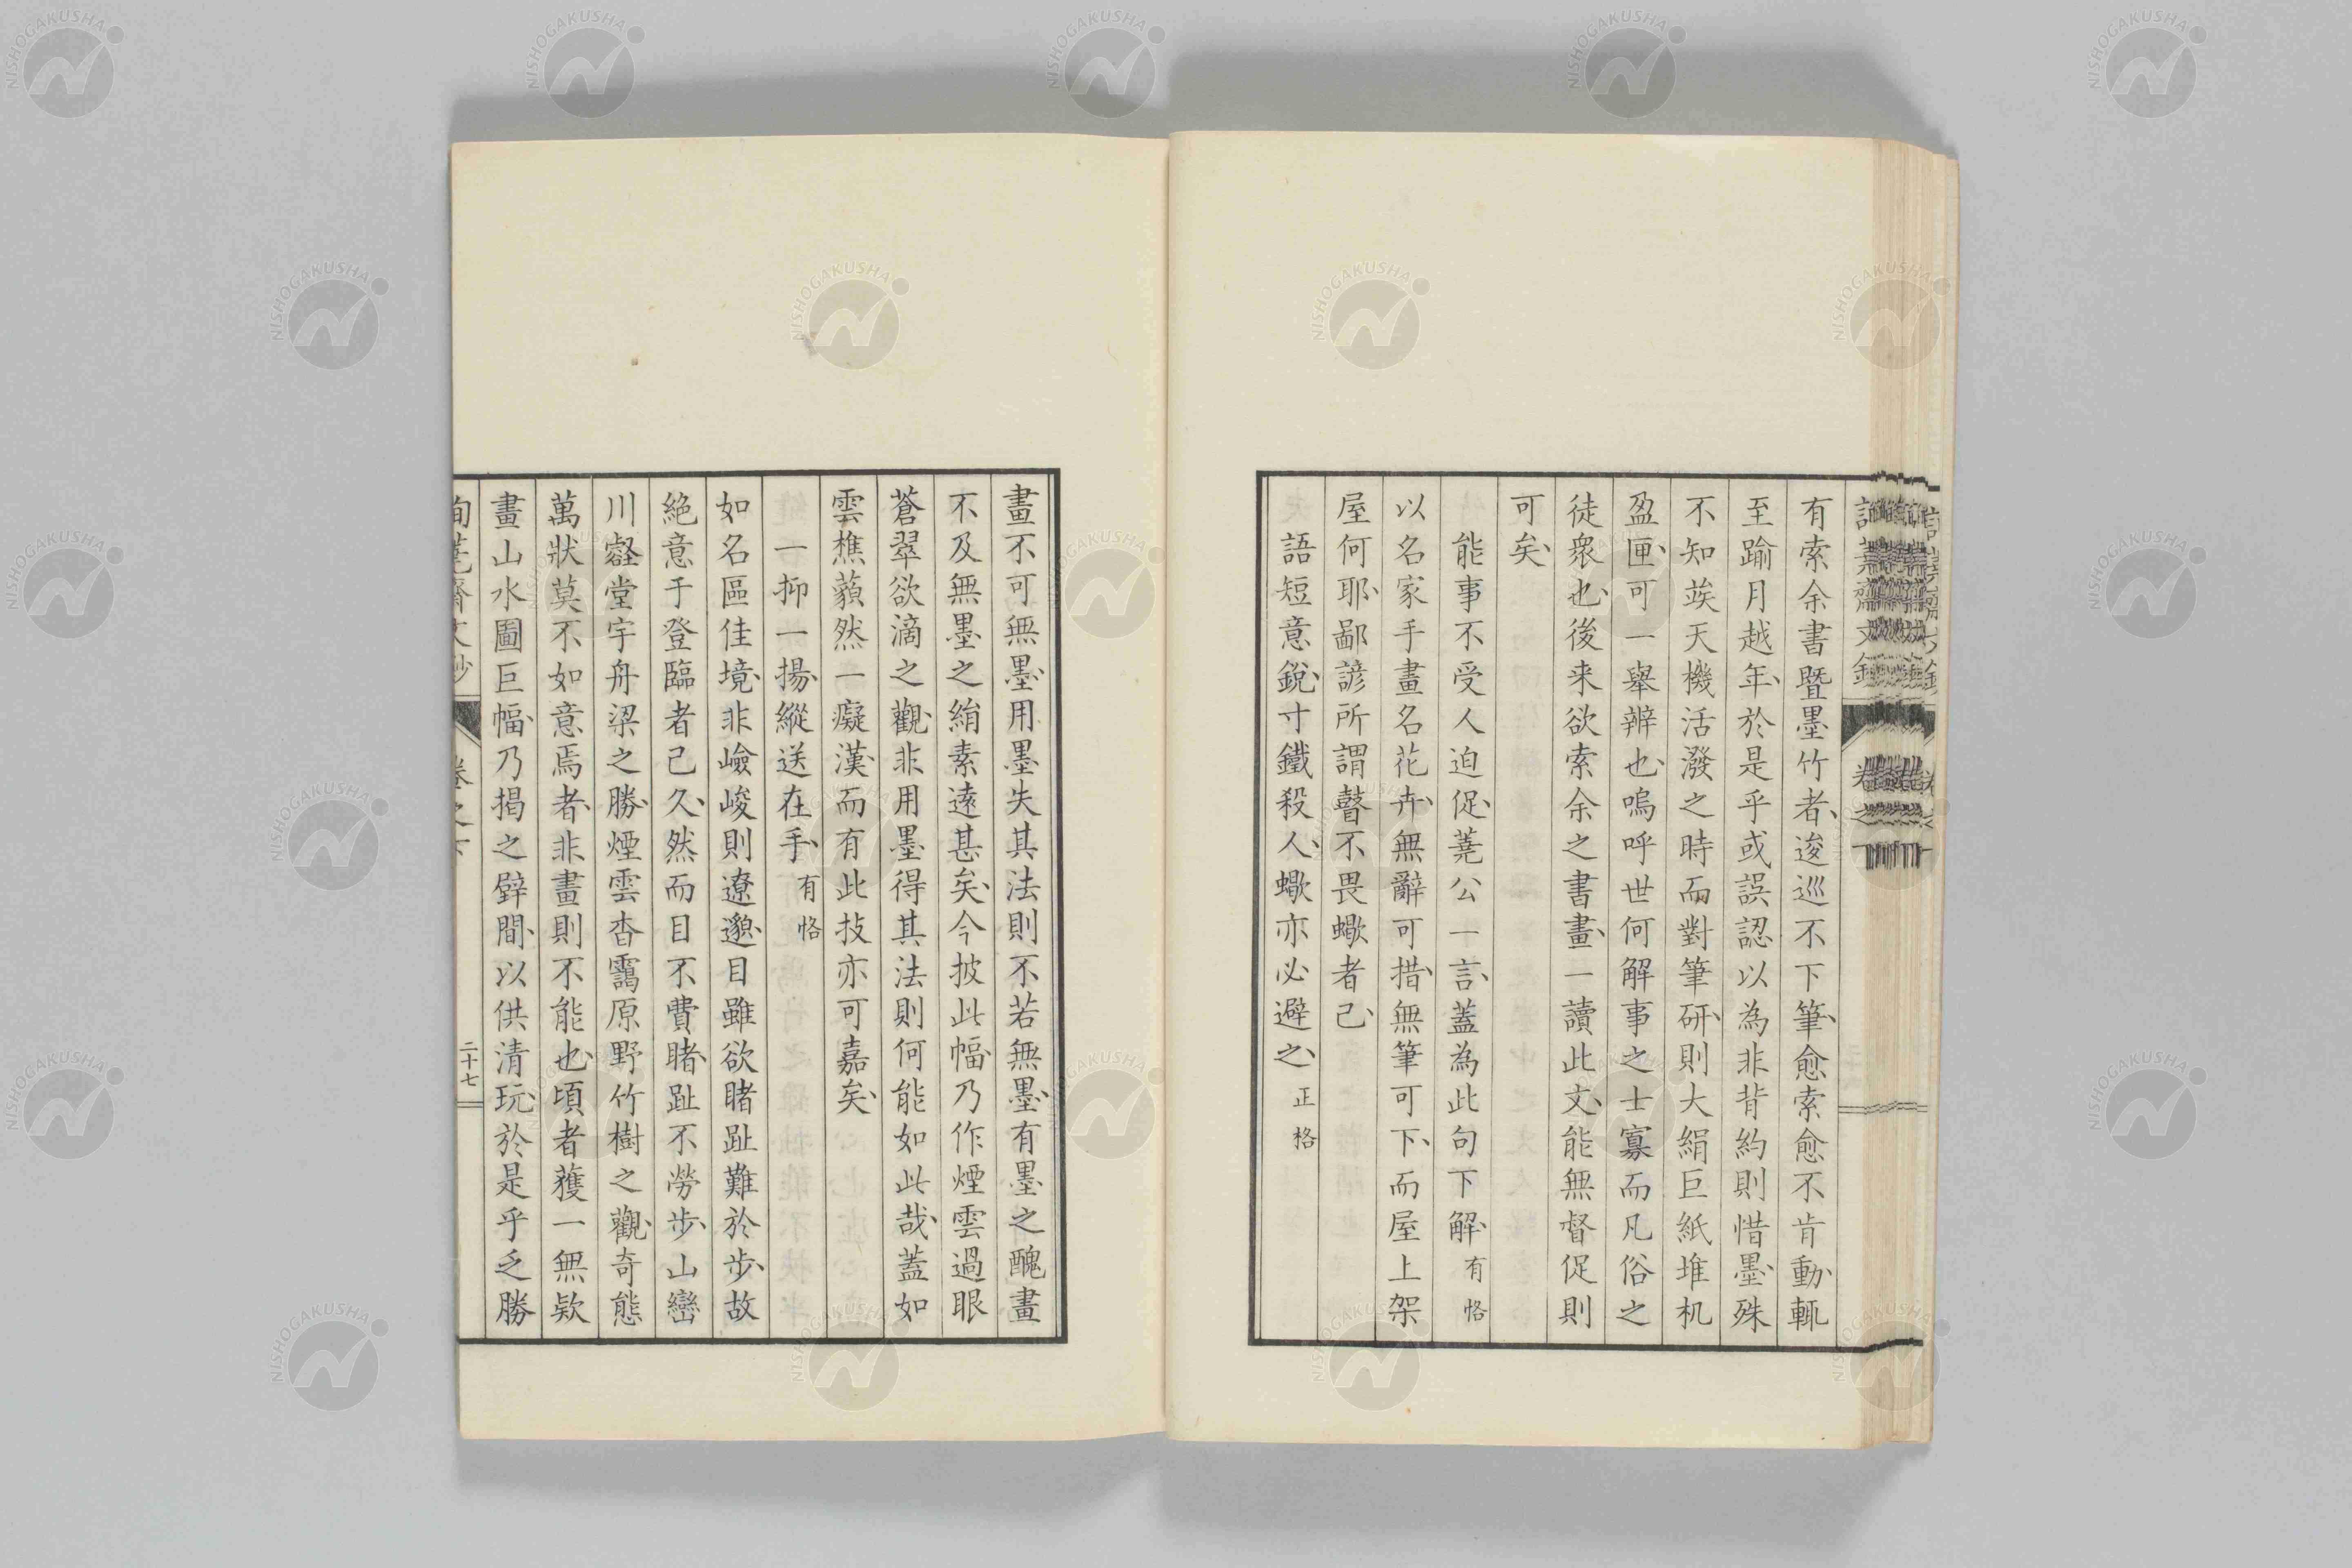 有索余書暨墨竹者、逡巡不下筆、愈索愈不肯動、輒
至踰月越年、於是乎或誤認以為非背約則惜墨、殊
不知蒺天機活潑之時而對筆研、則大絹巨紙堆机
盈匣、可一舉辨也、嗚呼世何解事之士寡而凡俗之
徒衆也、後来欲索余之書畫、一讀此文、能無督促則
可矣、
能事不受人迫促、蕘公一言、蓋為此句下解、有恪
以名家手畫名花卉、無辭可措、無筆可下、而屋上架
屋何耶、鄙諺所謂瞽不畏蠍者已、
語短意銳、寸鐵殺人、蠍亦必避之、正格
畫不可無墨、用墨失其法則不若無墨、有墨之醜畫
不及無墨之絹素遠甚矣、今披此幅、乃作煙雲過眼
蒼翠欲滴之觀、非用墨得其法則何能如此哉、蓋如
雲樵藐然一癡漢、而有此技亦可嘉矣、
一抑一揚、縱送在手、有恪
如名區佳境、非嶮峻則遼邈、目雖欲睹趾難於步、故
絶意于登臨者已久、然而目不費睹、趾不勞步、山巒
川谿堂宇舟梁之勝、煙雲杳靄原野竹樹之觀、奇態
萬狀莫不如意焉者、非畫則不能也、頃者獲一無欵
畫山水圖巨幅、乃揭之壁間、以供清玩、於是乎乏勝
卷之
二十七
NISHOGAKUSHA